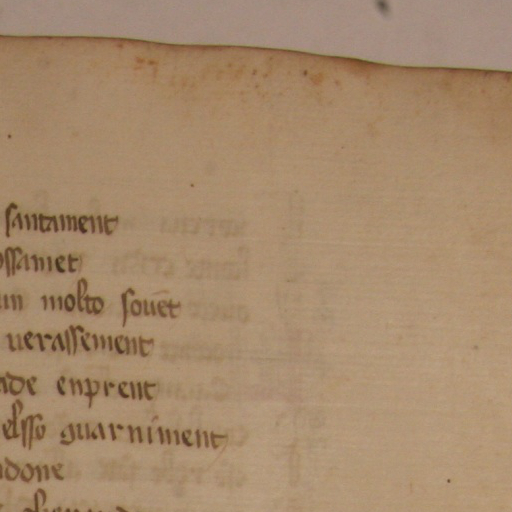 santament
ossamet
un molto souēt
uerassement
nde enprent
elsso guarniment
ndone